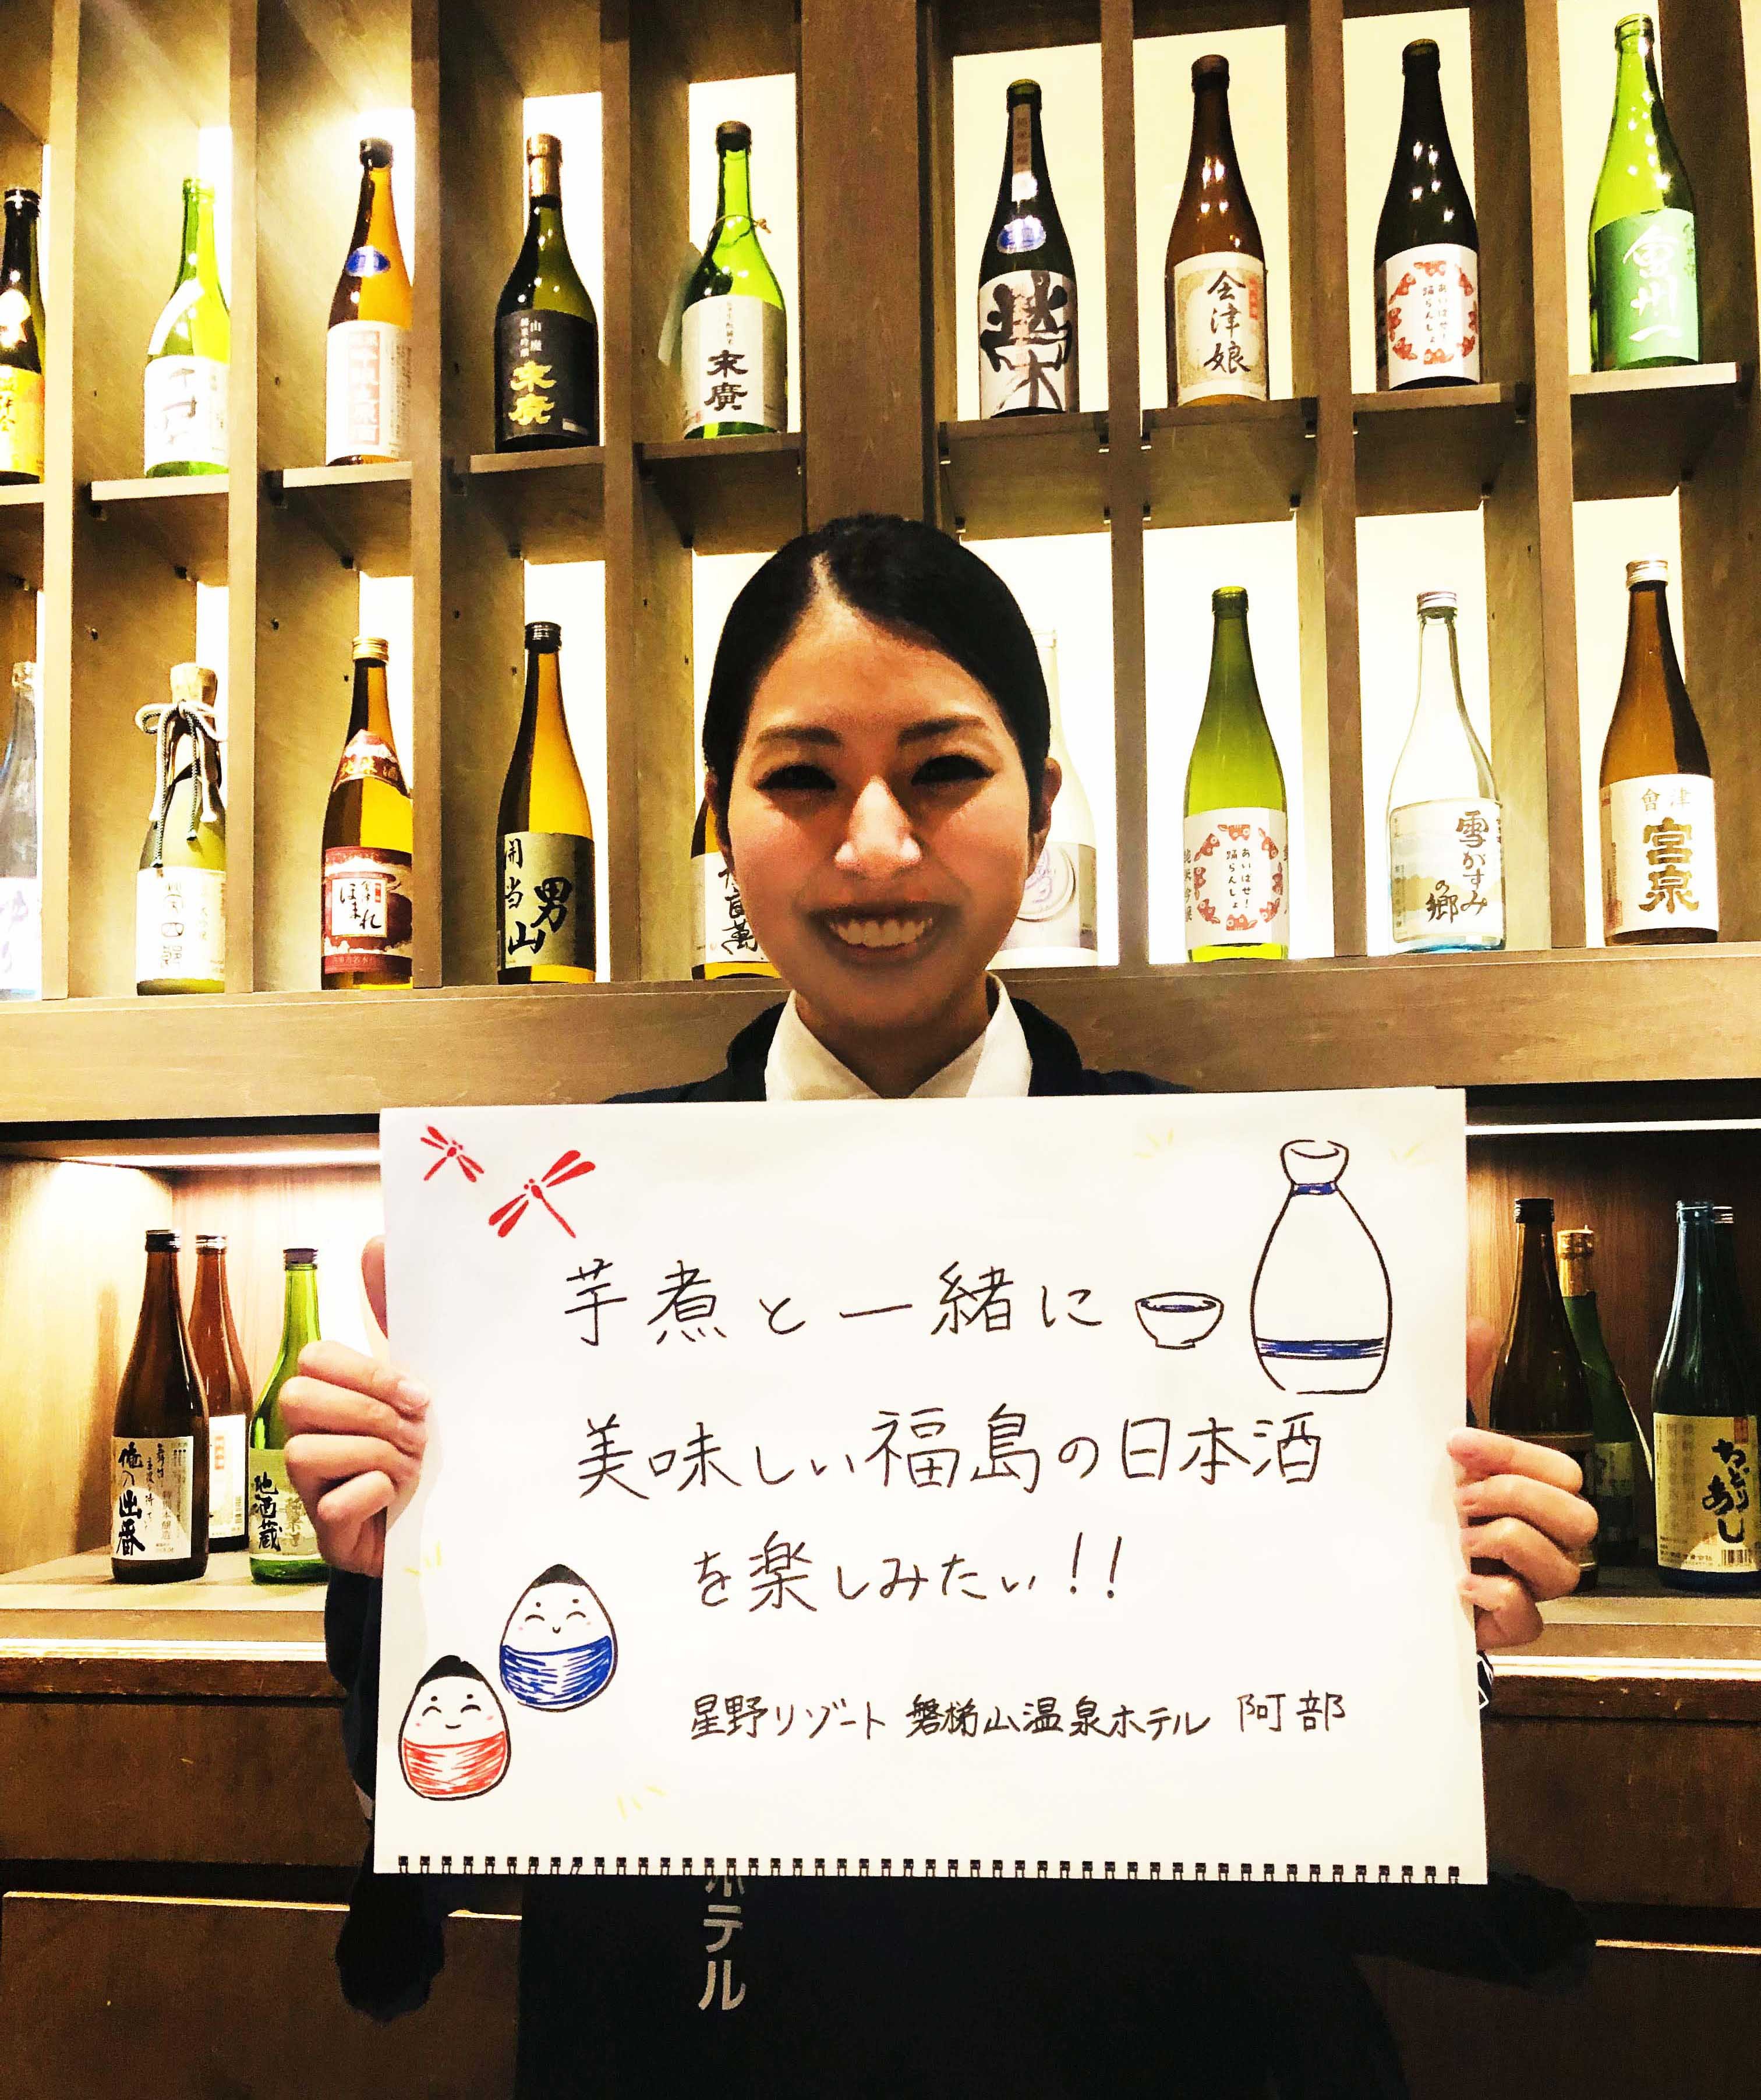 末廣
山廃
純米吟醸
末廣
会津娘
あいばせ!
踊らんしょ
會州一
ほまれ
開当
男山
あいばせ!
踊らんしょ
純米吟醸
雪がすみ
の郷
會津
宮泉
芋煮と一緒に
美味しい福島の日本酒
を楽しみたい!!
星野リゾート 磐梯山温泉ホテル 阿部
俺の出番
地酒蔵
ホテル